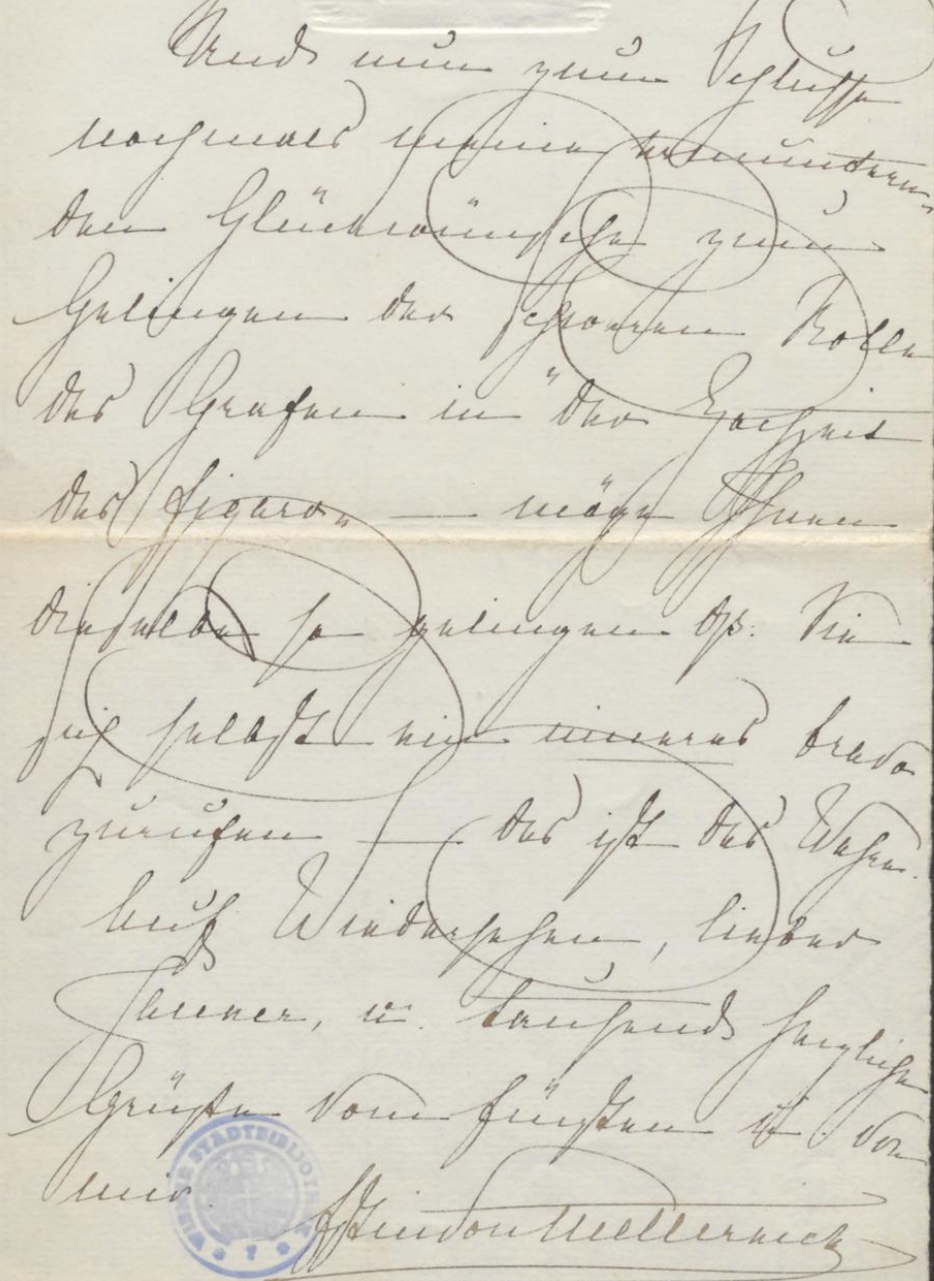 Und nun zum Schlusse
nochmals meine ermuntern-
den Glückwünsche zum
Gelingen der schweren Rolle
des Grafen in "der Hochzeit
des Figaro„ — möge Ihnen
dieselbe so gelingen dß: Sie
sich selbst ein inneres bravo
zurufen — das ist das Wahre.
Auf Wiedersehen, lieber
u. tausend herzliche
Grüße vom Fürsten u von
mir.
Fstin von Metternich
WIENER STADTBIBLIOTHEK